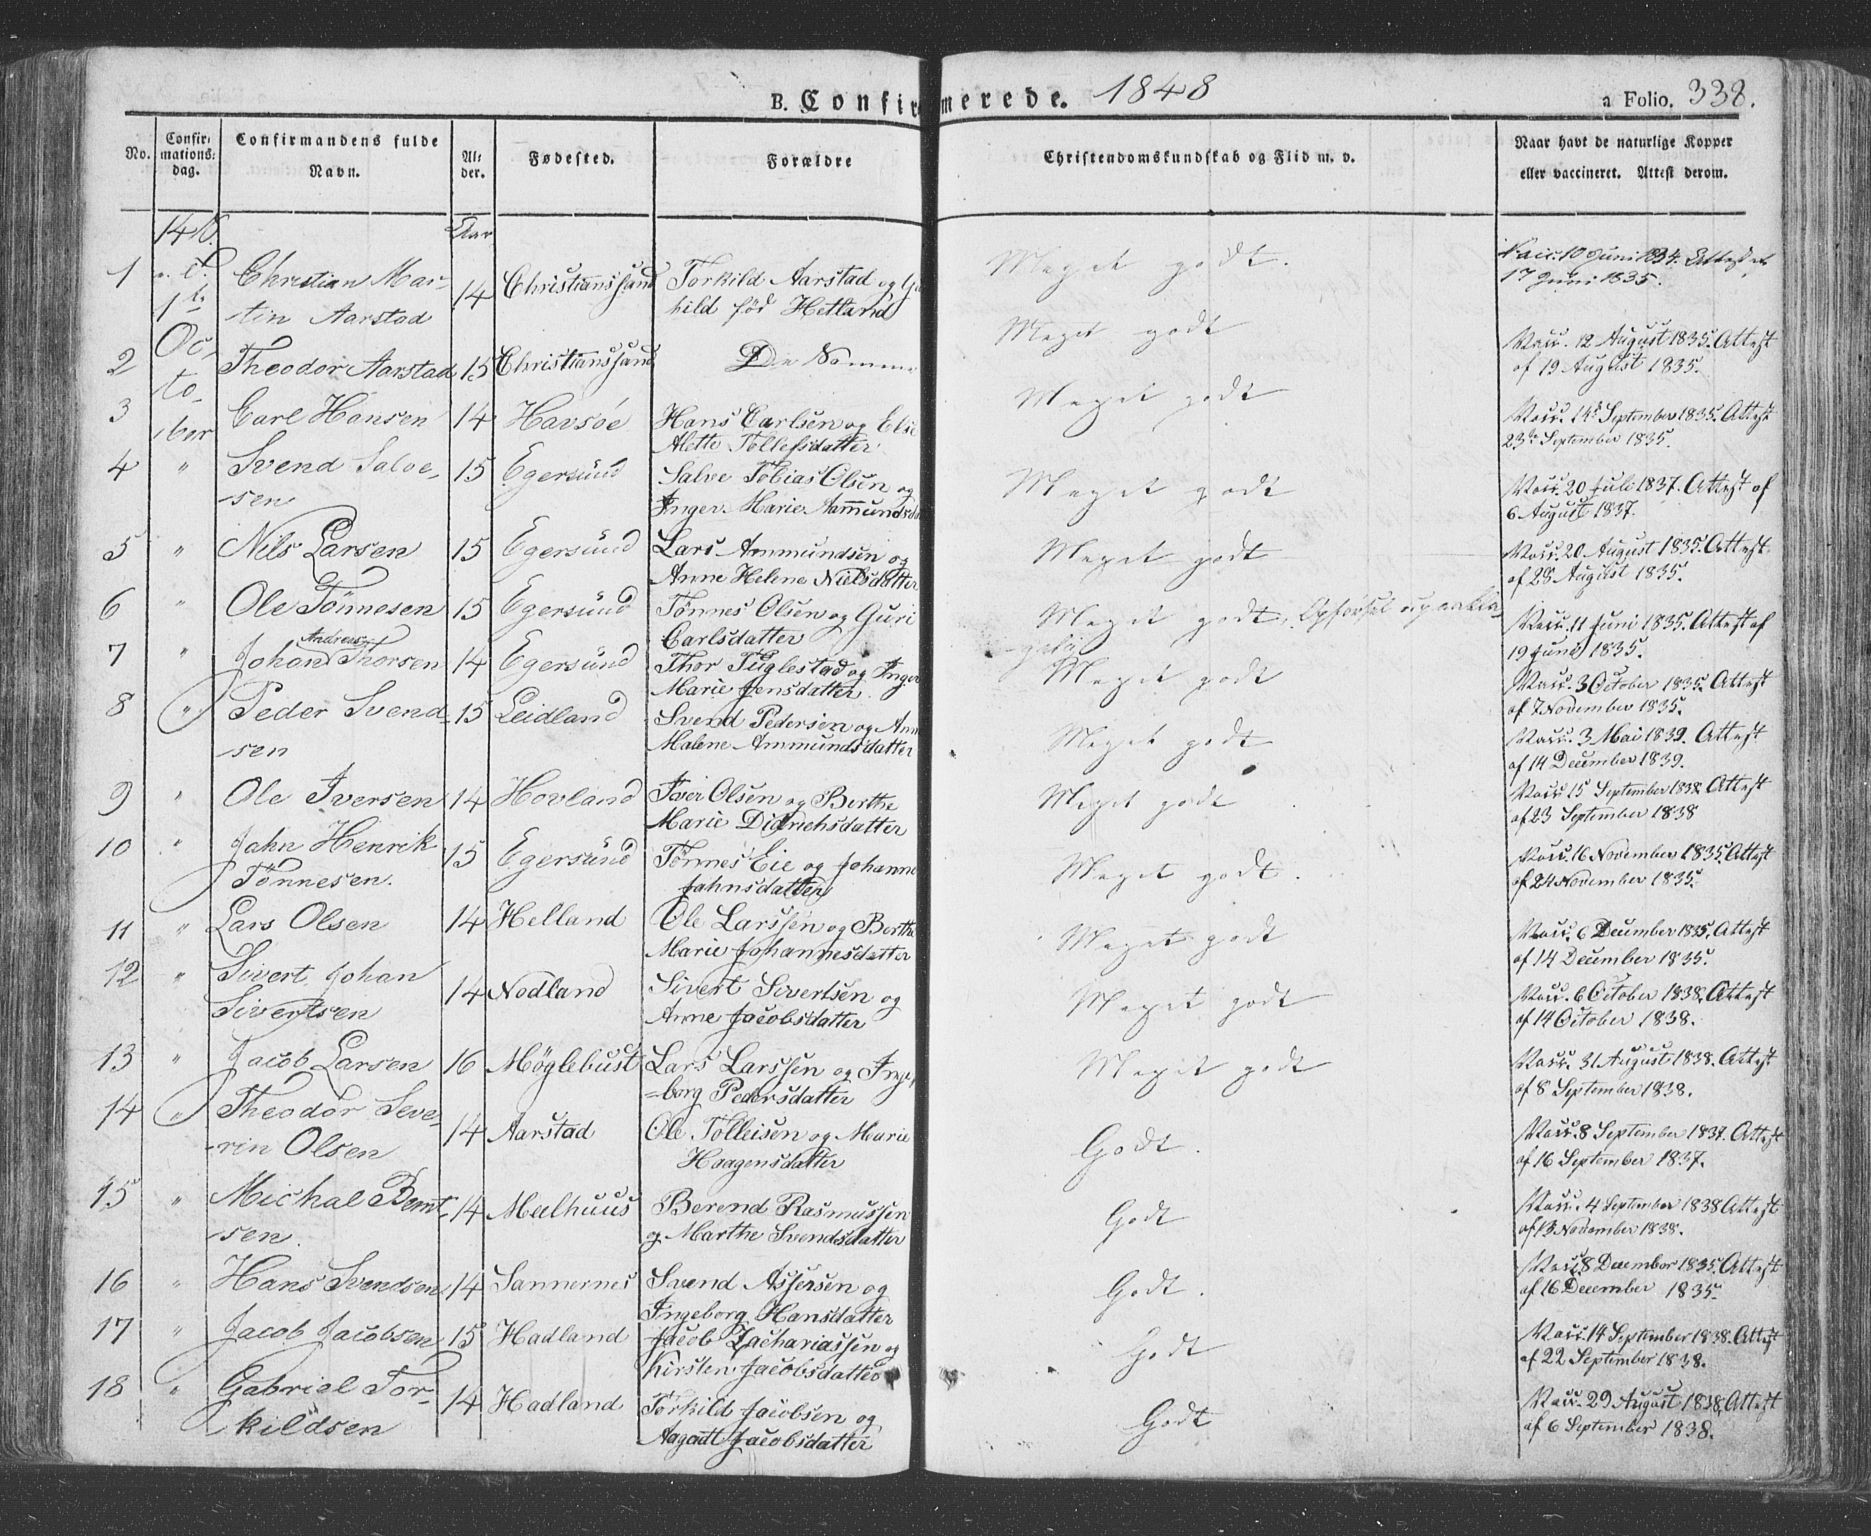 B. Confirmerede. 1848 a Folio. 338.
No. Confirmations-dag. Confirmandens fulde Navn. Alder. Fødested. Forældre Christendomskundskab og Flid m. v. Naar havt de naturlige Kopper eller vaccineret. Attest derom.
Aar
1ste October
1 Christian Mar- 14 Christianssand Torkild Aarstad og Gu- Meget godt. Vacc. 10 Juni 1834. Attest
tin Aarstad hild fød Hetland 17 Juni 1835.
2 Theodor Aarstad 15 Christianssand De Samme Meget godt Vacc. 12 August 1835. Attest
af 19 August 1835.
3 Carl Hansen 14 Havsøe Hans Carlsen og Else Meget godt Vacc. 14de September 1835. Attest
Alette Tollefsdatter 23de September 1835.
4 " Svend Salve- 15 Egersund Salve Tobias Olsen og Meget godt Vacc. 20 Juli 1837. Attest af
sen Inger Marie Ammundsda 6 August 1837.
5 " Nils Larsen 15 Egersund Lars Ammundsen og Meget godt Vacc. 20 August 1835. Attest
Anne Helene Nielsdatter af 28 August 1835.
6 " Ole Tönnesen 15 Egersund Tønnes Olsen og Guri Meget godt. Opførsel
Carlsdatter Vacc. 11 Juni 1835. Attest af
19 Juni 1835.
7 " Johan Andreas Thorsen 14 Egersund Thor Tuglestad og Inger Meget godt Vacc. 3 October 1835. Attest
Marie Jensdatter. af 7 November 1835.
8 " Peder Svend- 15 Leidland Svend Pedersen og Ann Meget godt Vacc. 3 Mai 1839. Attest
sen Malene Ammundsdatter af 14 December 1839.
9 " Ole Iversen 14 Hovland Iver Olsen og Berthe Meget godt Vacc. 15 September 1838 Attest
Marie Didrichsdatter af 23 September 1838
10 " Jahn Henrik 15 Egersund Tønnes Eie og Johanne Meget godt. Vacc. 16 November 1835 Attest
Tönnesen. Jahnsdatter af 24 November 1835.
11 " Lars Olsen 14 Helland Ole Larssen og Berthe Meget godt Vacc. 6 December 1835. Attest
Marie Johannesdatter af 14 December 1835.
12 " Sivert Johan 14 Nodland Sivert Sivertsen og Meget godt Vacc. 6 October 1838. Attest
Sivertsen Anne Jacobsdatter af 14 October 1838.
13 " Jacob Larsen 16 Møglebust Lars Larssen og Inge- Meget godt Vacc. 31 August 1838. Attest
=borg Pedersdatter af 8 September 1838.
14 " Theodor Seve- 14 Aarstad Ole Tolleisen og Marie Godt. Vacc. 8 September 1837. Attest
rin Olsen Haagensdatter af 16 September 1837.
15 " Michal Bernt- 14 Mælhuus Berend Rasmussen Godt Vacc. 4 September 1838 Attest
sen. og Marthe Svendsdatter af 13 November 1838.
16 " Hans Svendsen 14 Sannernes Svend Assersen og Godt. Vacc. 8 December 1835. Attest
Ingeborg Hansdatter af 16 December 1835.
17 " Jacob Jacobsen 15 Hadland Jacob Zachariassen og Godt Vacc. 14 September 1838. Attest
Kirsten Jacobsdatter af 22 September 1838.
18 " Gabriel Tor- 14 Hadland Torkild Jacobsen og Godt Vacc. 29 August 1838. Attest
kildsen Jacobsdatter af 6 September 1838.